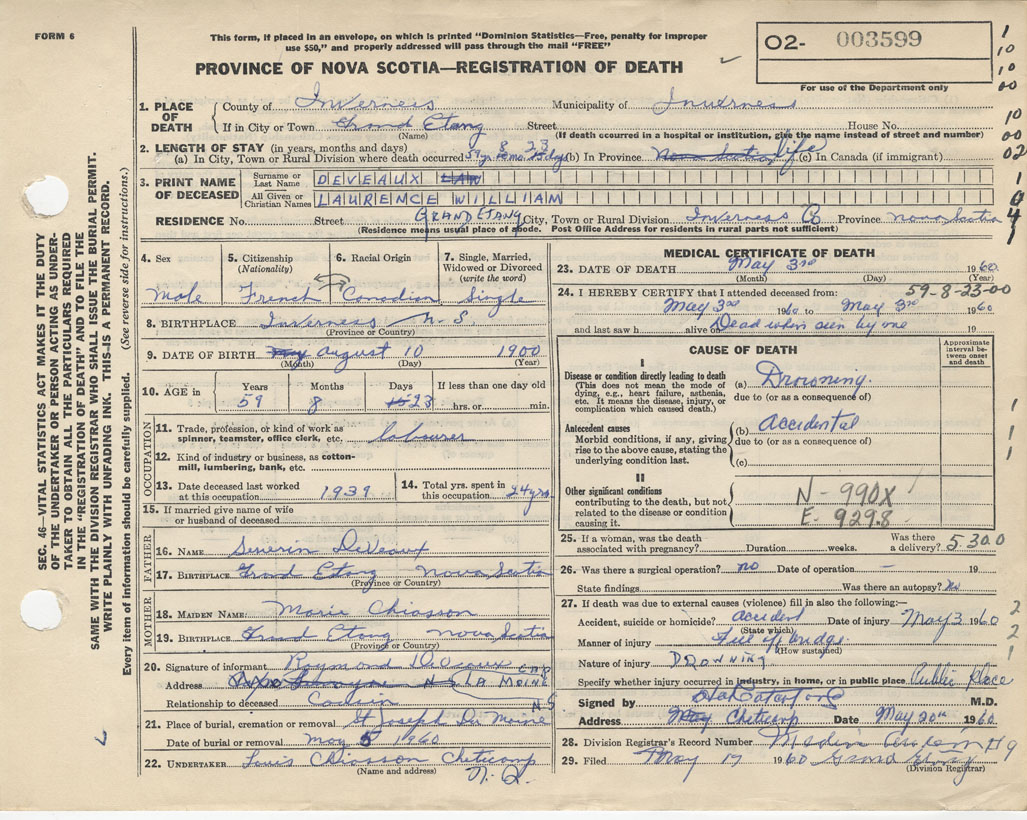 FORM 6
This form, if placed in an envelope, on which is printed "Dominion Statistics—Free, penalty for improper
use $50," and properly addressed will pass through the mail "FREE"
PROVINCE OF NOVA SCOTIA—REGISTRATION OF DEATH
O2- 003599
For use of the Department only
SEC. 46—VITAL STATISTICS ACT MAKES IT THE DUTY
OF THE UNDERTAKER OR PERSON ACTING AS UNDER-
TAKER TO OBTAIN ALL THE PARTICULARS REQUIRED
IN THE "REGISTRATION OF DEATH" AND TO FILE THE
SAME WITH THE DIVISION REGISTRAR WHO SHALL ISSUE THE BURIAL PERMIT.
WRITE PLAINLY WITH UNFADING INK. THIS IS A PERMANENT RECORD.
Every item of information should be carefully supplied. (See reverse side for instructions.)
1. PLACE OF DEATH
County of Inverness Municipality of Inverness
If in City or Town Grand Etang Street House No.
(Name) (If death occurred in a hospital or institution, give the name instead of street and number)
2. LENGTH OF STAY (in years, months and days)
(a) In City, Town or Rural Division where death occurred 59 yrs 8 mo 23 days (b) In Province life (c) In Canada (if immigrant)
3. PRINT NAME OF DECEASED
Surname or Last Name DEVEAUX
All Given or Christian Names LAURENCE WILLIAM
RESIDENCE No. Street GRAND ETANG City, Town or Rural Division Inverness Co Province Nova Scotia
(Residence means usual place of abode. Post Office Address for residents in rural parts not sufficient)
4. Sex Male
5. Citizenship (Nationality) French
6. Racial Origin Canadian
7. Single, Married, Widowed or Divorced (write the word) Single
8. BIRTHPLACE Inverness N.S.
(Province or Country)
9. DATE OF BIRTH August 10 1900
(Month) (Day) (Year)
10. AGE in Years 59 Months 8 Days 23 If less than one day old hrs. or min.
OCCUPATION
11. Trade, profession, or kind of work as spinner, teamster, office clerk, etc. labourer
12. Kind of industry or business, as cotton-mill, lumbering, bank, etc.
13. Date deceased last worked at this occupation 1939
14. Total yrs. spent in this occupation 24 yrs
15. If married give name of wife or husband of deceased
FATHER
16. NAME Severin DeVeaux
17. BIRTHPLACE Grand Etang Nova Scotia
(Province or Country)
MOTHER
18. MAIDEN NAME: Marie Chiasson
19. BIRTHPLACE Grand Etang Nova Scotia
(Province or Country)
20. Signature of informant Raymond DeVeaux
Address CAP LA MOINE N S
Relationship to deceased Cousin
21. Place of burial, cremation or removal St Joseph Du Moine
Date of burial or removal May 5 1960
22. UNDERTAKER Louis Chiasson Cheticamp
(Name and address)
MEDICAL CERTIFICATE OF DEATH
23. DATE OF DEATH May 3rd 1960
(Month) (Day) (Year)
59-8-23-00
24. I HEREBY CERTIFY that I attended deceased from:
May 3rd 1960 to May 3rd 1960
and last saw h alive on Dead when seen by me 19
CAUSE OF DEATH
Approximate interval between onset and death
I
Disease or condition directly leading to death
(This does not mean the mode of dying, e.g., heart failure, asthenia, etc. It means the disease, injury, or complication which caused death.)
(a) Drowning.
due to (or as a consequence of)
Antecedent causes
Morbid conditions, if any, giving rise to the above cause, stating the underlying condition last.
(b) Accidental
due to (or as a consequence of)
(c)
II
Other significant conditions
contributing to the death, but not related to the disease or condition causing it.
N - 990X
E - 929.8
25. If a woman, was the death associated with pregnancy? Duration weeks. Was there a delivery? 5300
26. Was there a surgical operation? no Date of operation — 19
State findings Was there an autopsy? No
27. If death was due to external causes (violence) fill in also the following:—
Accident, suicide or homicide? accident Date of injury May 3 1960
(State which)
Manner of injury Fell off bridge
(How sustained)
Nature of injury DROWNING
Specify whether injury occurred in industry, in home, or in public place Public place
Signed by M.D.
Address Cheticamp Date May 20th 1960
28. Division Registrar's Record Number
29. Filed May 17 1960 Grand Etang
(Division Registrar)